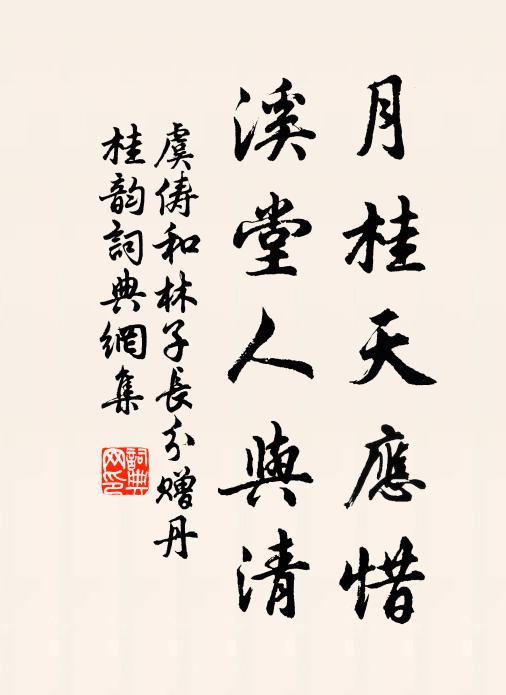 月桂天應惜
溪堂人與清
虞儔和林子長分贈丹
桂韵詞典網集
詞典
网印